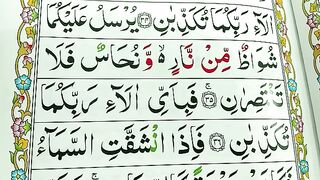 اٰلَآءِ رَبِّكُمَا تُكَذِّبٰنِ ﴿۳۴﴾ يُرْسَلُ عَلَيْكُمَا
شُوَاظٌ مِّنْ نَّارٍ ۙ وَّ نُحَاسٌ فَلَا
تَنْتَصِرٰنِ ﴿۳۵﴾ فَبِاَىِّ اٰلَآءِ رَبِّكُمَا
تُكَذِّبٰنِ ﴿۳۶﴾ فَاِذَا انْشَقَّتِ السَّمَآءُ